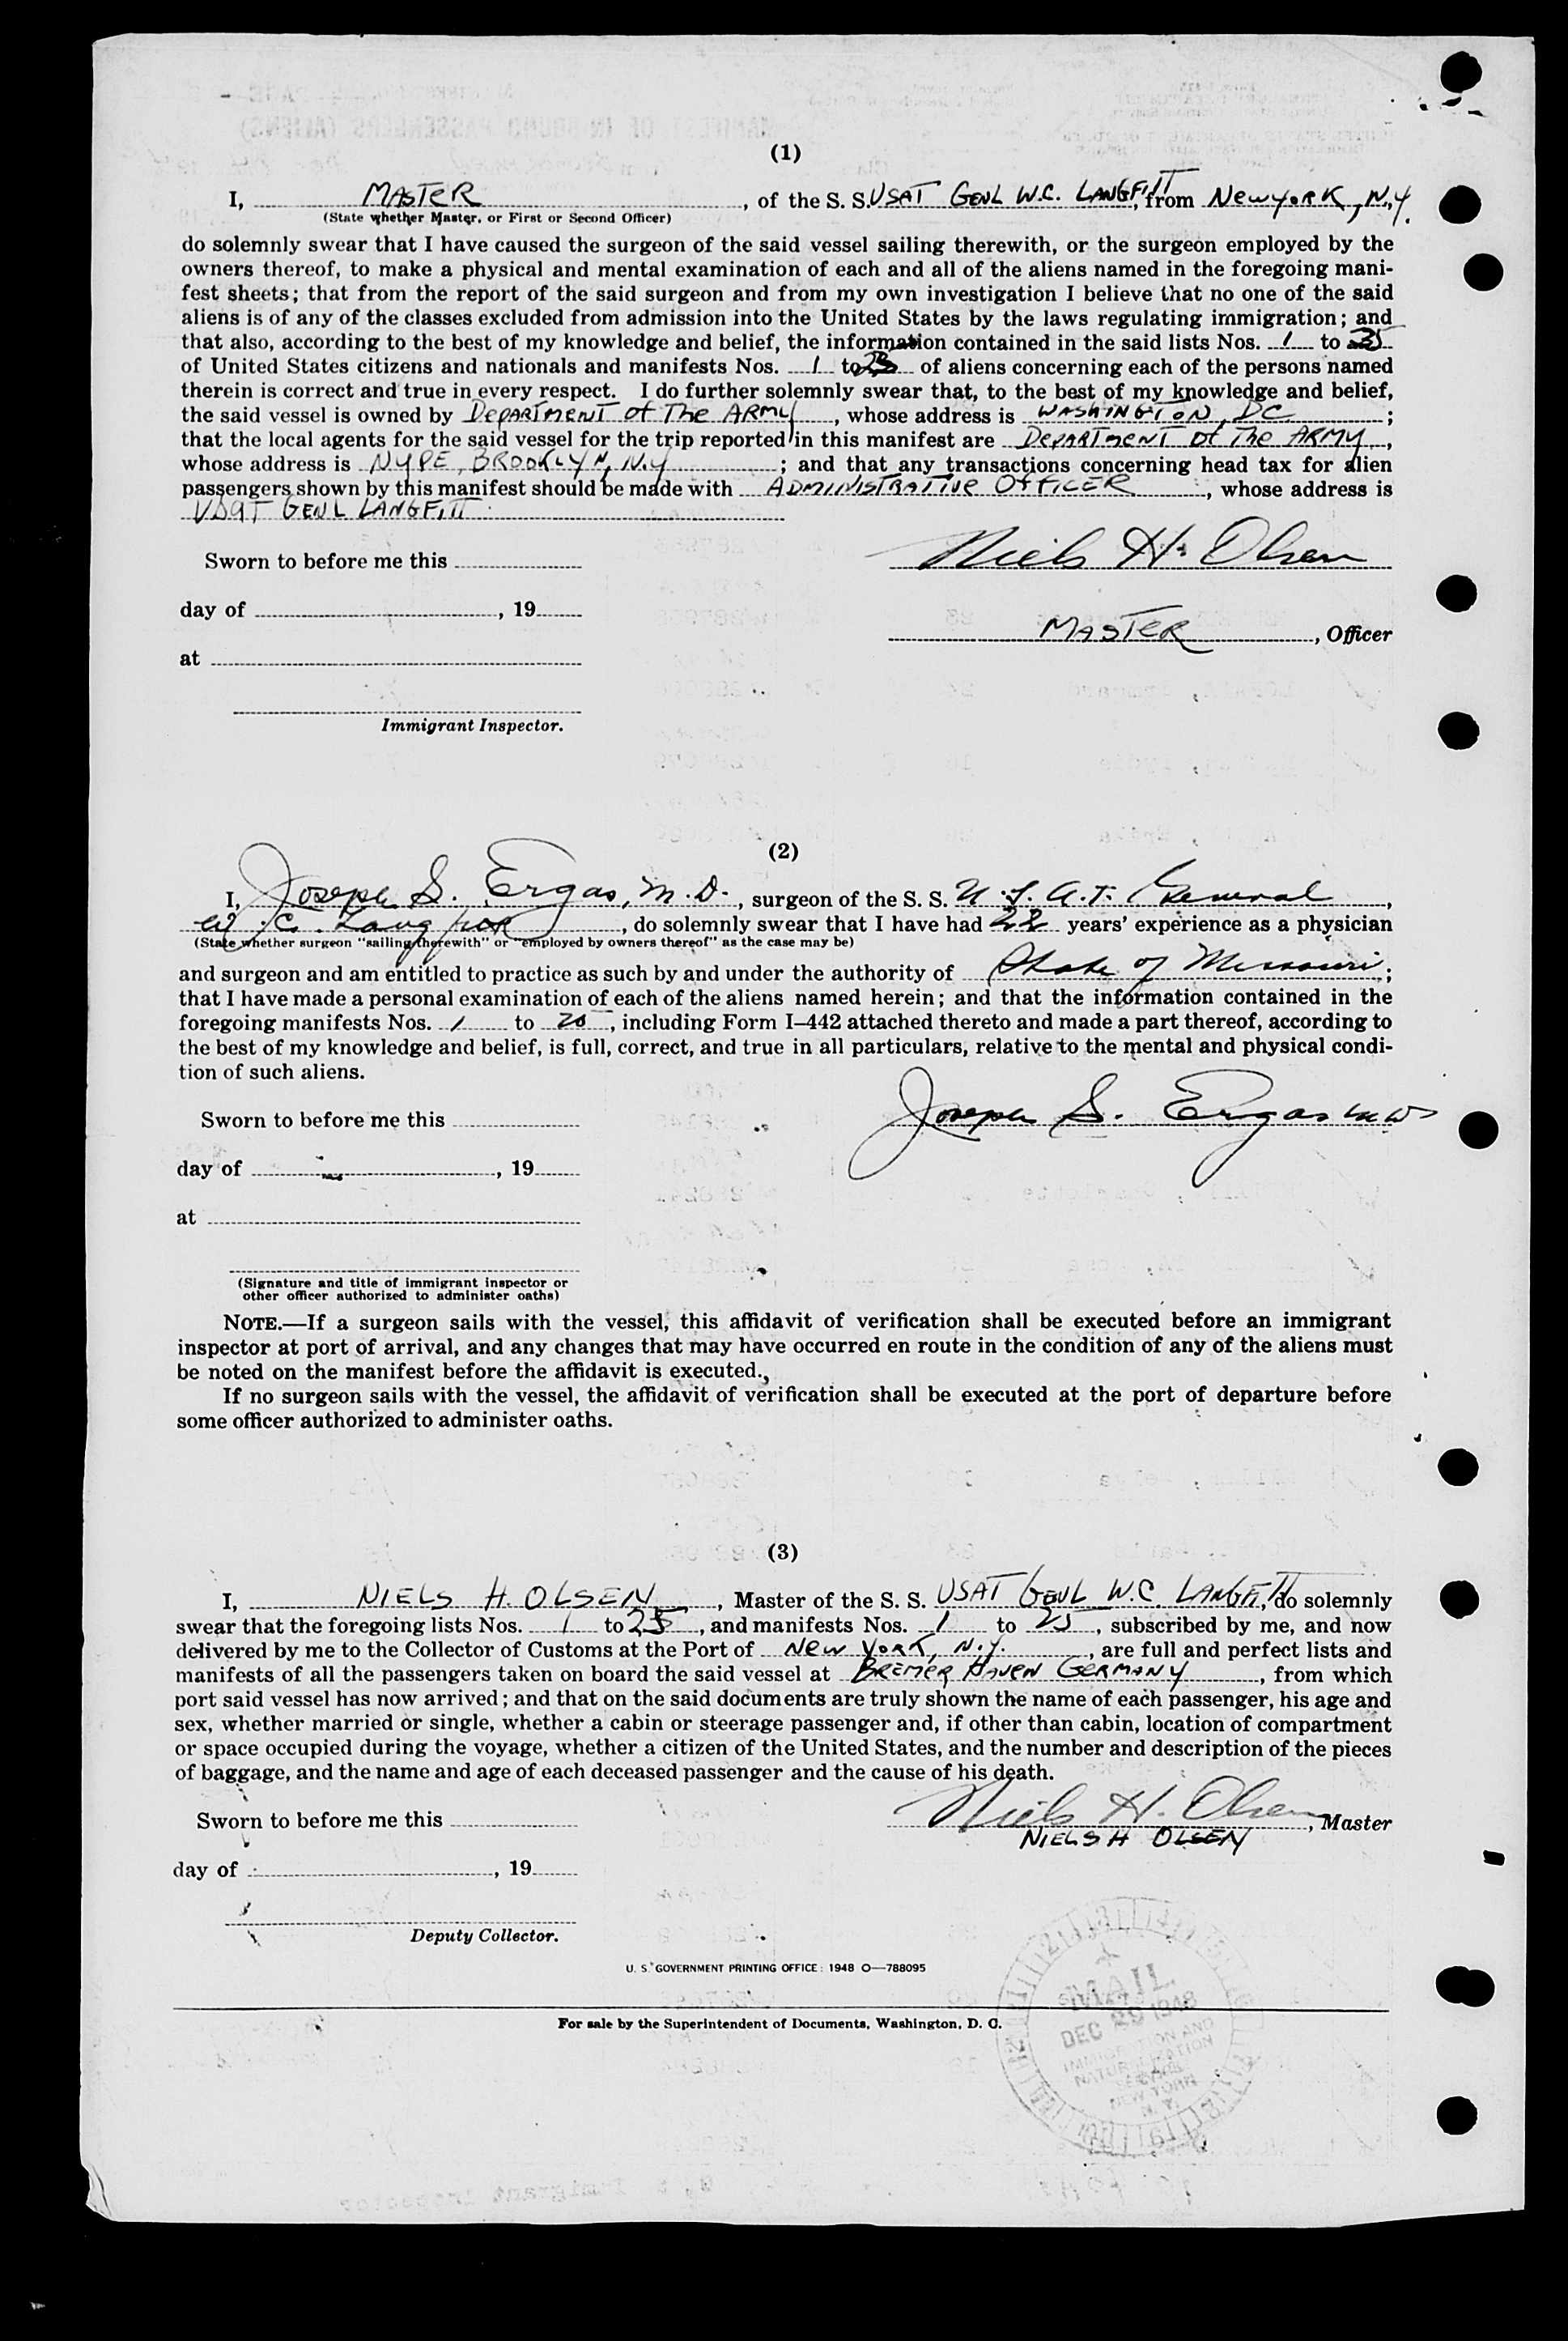 (1)
I, MASTER, of the S. S. USAT GENL W.C. LANGFITT, from New York, N.Y.
(State whether Master, or First or Second Officer)
do solemnly swear that I have caused the surgeon of the said vessel sailing therewith, or the surgeon employed by the
owners thereof, to make a physical and mental examination of each and all of the aliens named in the foregoing mani-
fest sheets; that from the report of the said surgeon and from my own investigation I believe that no one of the said
aliens is of any of the classes excluded from admission into the United States by the laws regulating immigration; and
that also, according to the best of my knowledge and belief, the information contained in the said lists Nos. 1 to
of United States citizens and nationals and manifests Nos. 1 to of aliens concerning each of the persons named
therein is correct and true in every respect. I do further solemnly swear that, to the best of my knowledge and belief,
the said vessel is owned by Department of The ARMY, whose address is WASHINGTON, DC;
that the local agents for the said vessel for the trip reported in this manifest are Department of The ARMY,
whose address is NYPE, BROOKLYN, N.Y; and that any transactions concerning head tax for alien
passengers shown by this manifest should be made with ADMINISTRATIVE OFFICER, whose address is
USAT GENL LANGFITT
Sworn to before me this
Niels H. Olsen
day of , 19
MASTER, Officer
at
Immigrant Inspector.
(2)
I, Joseph S. Ergas, M.D., surgeon of the S. S. U.S.A.T. General,
W. C. , do solemnly swear that I have had 22 years' experience as a physician
(State whether surgeon "sailing therewith" or "employed by owners thereof" as the case may be)
and surgeon and am entitled to practice as such by and under the authority of State of Missouri;
that I have made a personal examination of each of the aliens named herein; and that the information contained in the
foregoing manifests Nos. 1 to 20, including Form I–442 attached thereto and made a part thereof, according to
the best of my knowledge and belief, is full, correct, and true in all particulars, relative to the mental and physical condi-
tion of such aliens.
Sworn to before me this
Joseph S. Ergas MD
day of , 19
at
(Signature and title of immigrant inspector or
other officer authorized to administer oaths)
NOTE.—If a surgeon sails with the vessel, this affidavit of verification shall be executed before an immigrant
inspector at port of arrival, and any changes that may have occurred en route in the condition of any of the aliens must
be noted on the manifest before the affidavit is executed.
If no surgeon sails with the vessel, the affidavit of verification shall be executed at the port of departure before
some officer authorized to administer oaths.
(3)
I, NIELS H. OLSEN, Master of the S. S. USAT GENL W.C. LANGFITT, do solemnly
swear that the foregoing lists Nos. 1 to 25, and manifests Nos. 1 to 25, subscribed by me, and now
delivered by me to the Collector of Customs at the Port of New York, N.Y., are full and perfect lists and
manifests of all the passengers taken on board the said vessel at BREMER HAVEN GERMANY, from which
port said vessel has now arrived; and that on the said documents are truly shown the name of each passenger, his age and
sex, whether married or single, whether a cabin or steerage passenger and, if other than cabin, location of compartment
or space occupied during the voyage, whether a citizen of the United States, and the number and description of the pieces
of baggage, and the name and age of each deceased passenger and the cause of his death.
Sworn to before me this
Niels H. Olsen, Master
NIELS H OLSEN
day of , 19
Deputy Collector.
U. S. GOVERNMENT PRINTING OFFICE: 1948 O—788095
For sale by the Superintendent of Documents, Washington, D. C.
MAIL
DEC 29 1948
IMMIGRATION AND
NATURALIZATION
SERVICE
NEW YORK
N. Y.